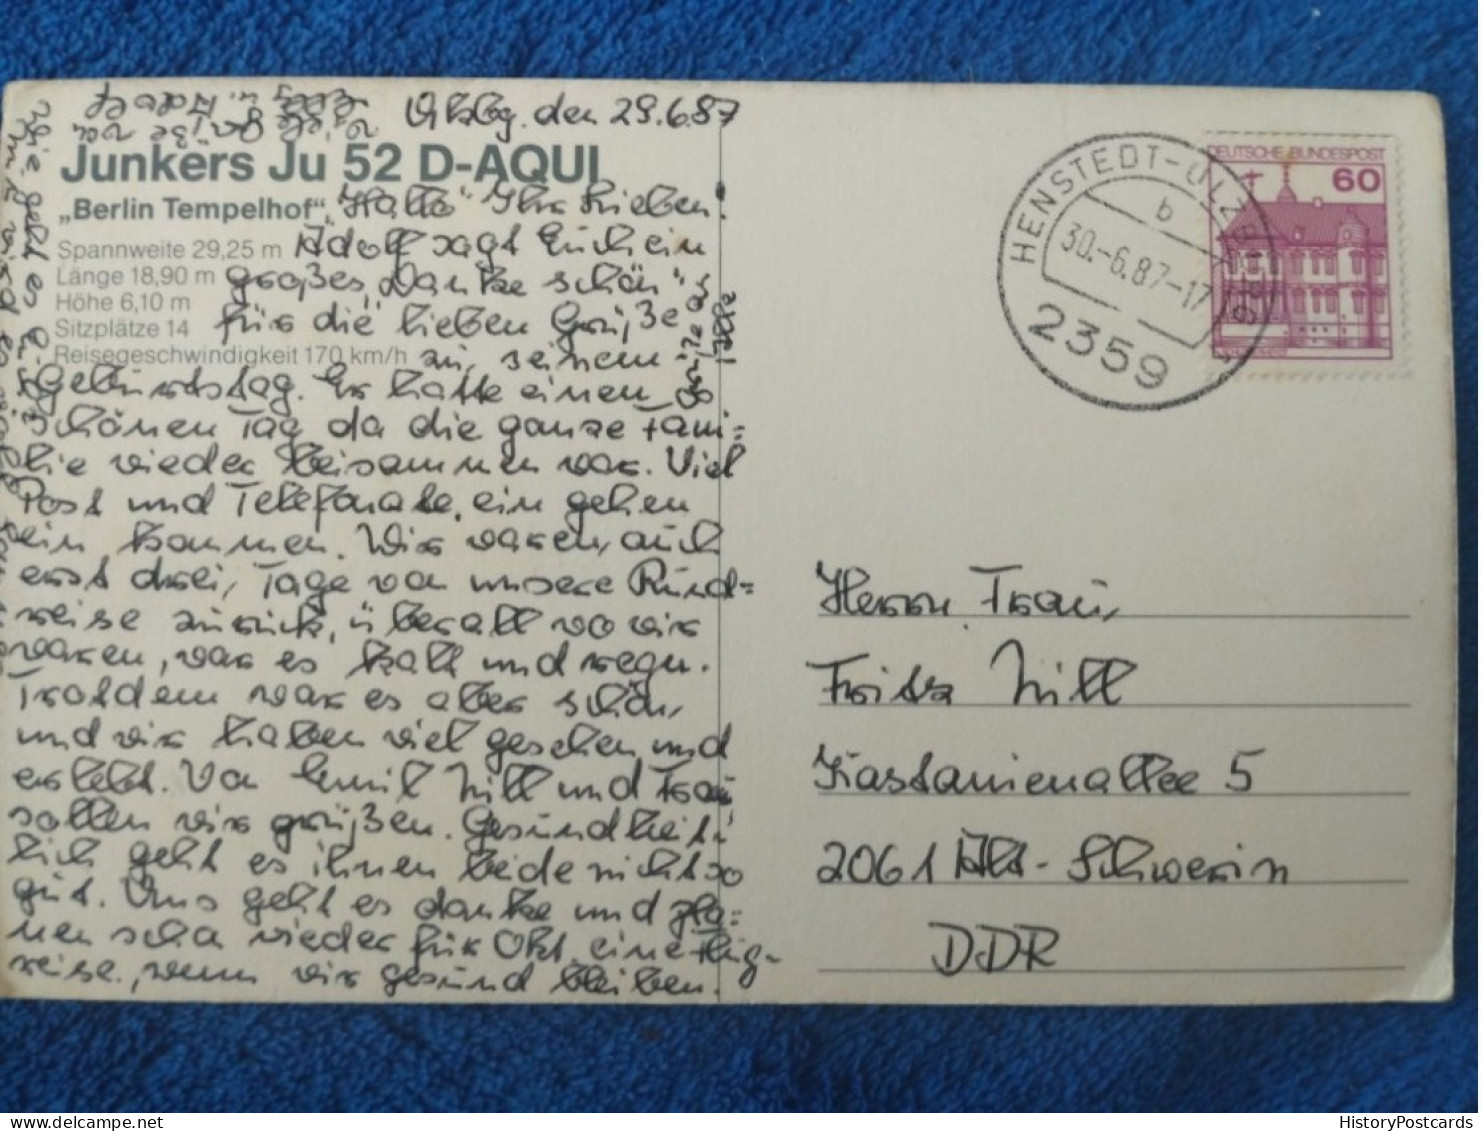 Ulzbg. den 29.6.87
Junkers Ju 52 D-AQUI
„Berlin Tempelhof“
Spannweite 29,25 m
Länge 18,90 m
Höhe 6,10 m
Sitzplätze 14
Reisegeschwindigkeit 170 km/h
"Hallo" Ihr Lieben!
Adolf sagt Euch ein
großes "Danke schön"
für die lieben Grüße
zu seinem
Geburtstag. Er hatte einen
schönen Tag da die ganze Fami-
lie wieder beisammen war. Viel
Post und Telefonate, ein gehen
ein kommen. Wir waren, auch
erst drei, Tage von unsere Rund-
reise zurück, überall wo wir
waren, war es kalt und regn.
Trotzdem war es aber schön,
und wir haben viel gesehen und
erlebt. Von Emil Hill und Frau
sollen wir grüßen. Gesundheit-
lich geht es ihnen beide nicht so
gut. Uns geht es danke und pla-
nen scho wieder für Okt. eine Flug-
reise, wenn wir gesund bleiben.
Wie geht es
viele Grüße
u. Adolf
Grüße an
HENSTEDT-ULZBURG
b
30.-6.87-17
2359
DEUTSCHE BUNDESPOST
60
Herrn, Frau,
Fritz Hill
Kastanienallee 5
2061 Alt-Schwerin
DDR
HistoryPostcards